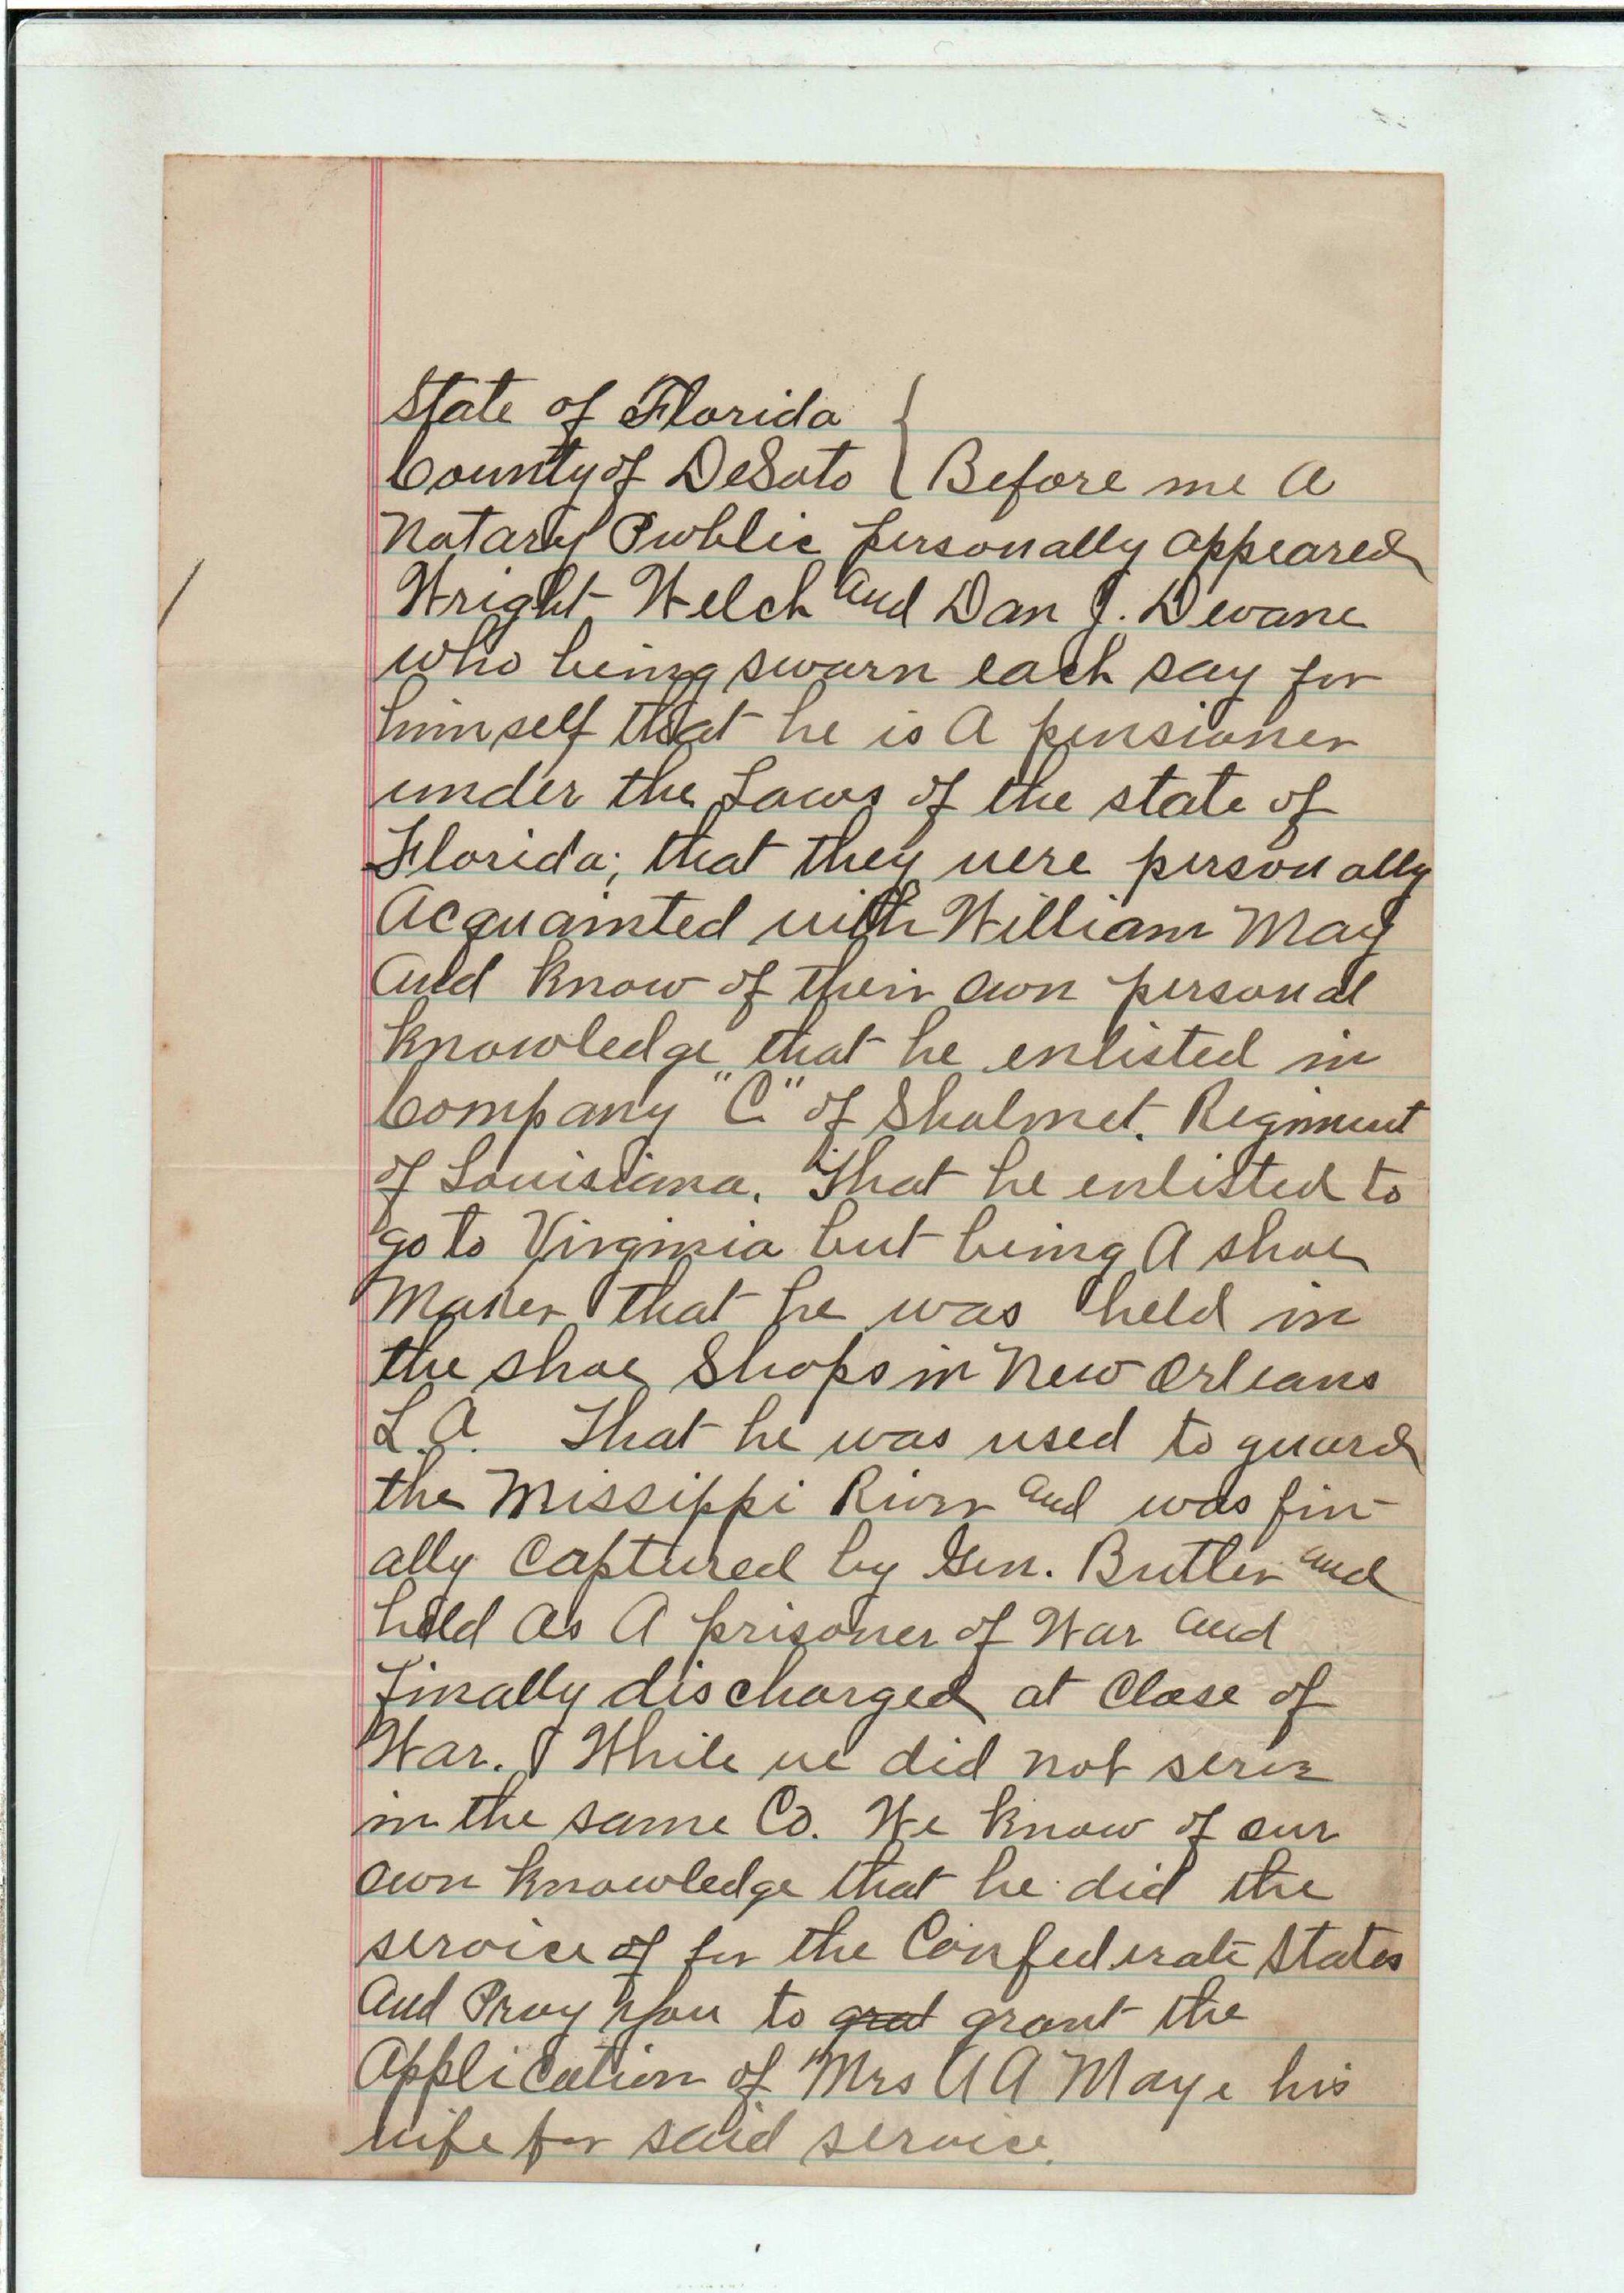 State of Florida {
County of DeSoto { Before me A
Notary Public personally appeared
Wright Welch and Dan J. Devane
who being sworn each say for
himself that he is A pensioner
under the Laws of the state of
Florida; that they were personally
Acquainted with William May
and know of their own personal
knowledge that he enlisted in
Company "C" of Shalmet. Regiment
of Louisiana. That he enlisted to
go to Virginia but being A shoe
Maker that he was held in
the shoe Shops in New Orleans
L.A. That he was used to guard
the Missippi River and was fin-
ally captured by Gen. Butler and
held as A prisoner of War and
finally discharged at Close of
War. While we did not serve
in the same Co. We know of our
own knowledge that he did the
service of for the Confederate States
and Pray you to grat grant the
Application of Mrs A A Maye his
wife for said service.